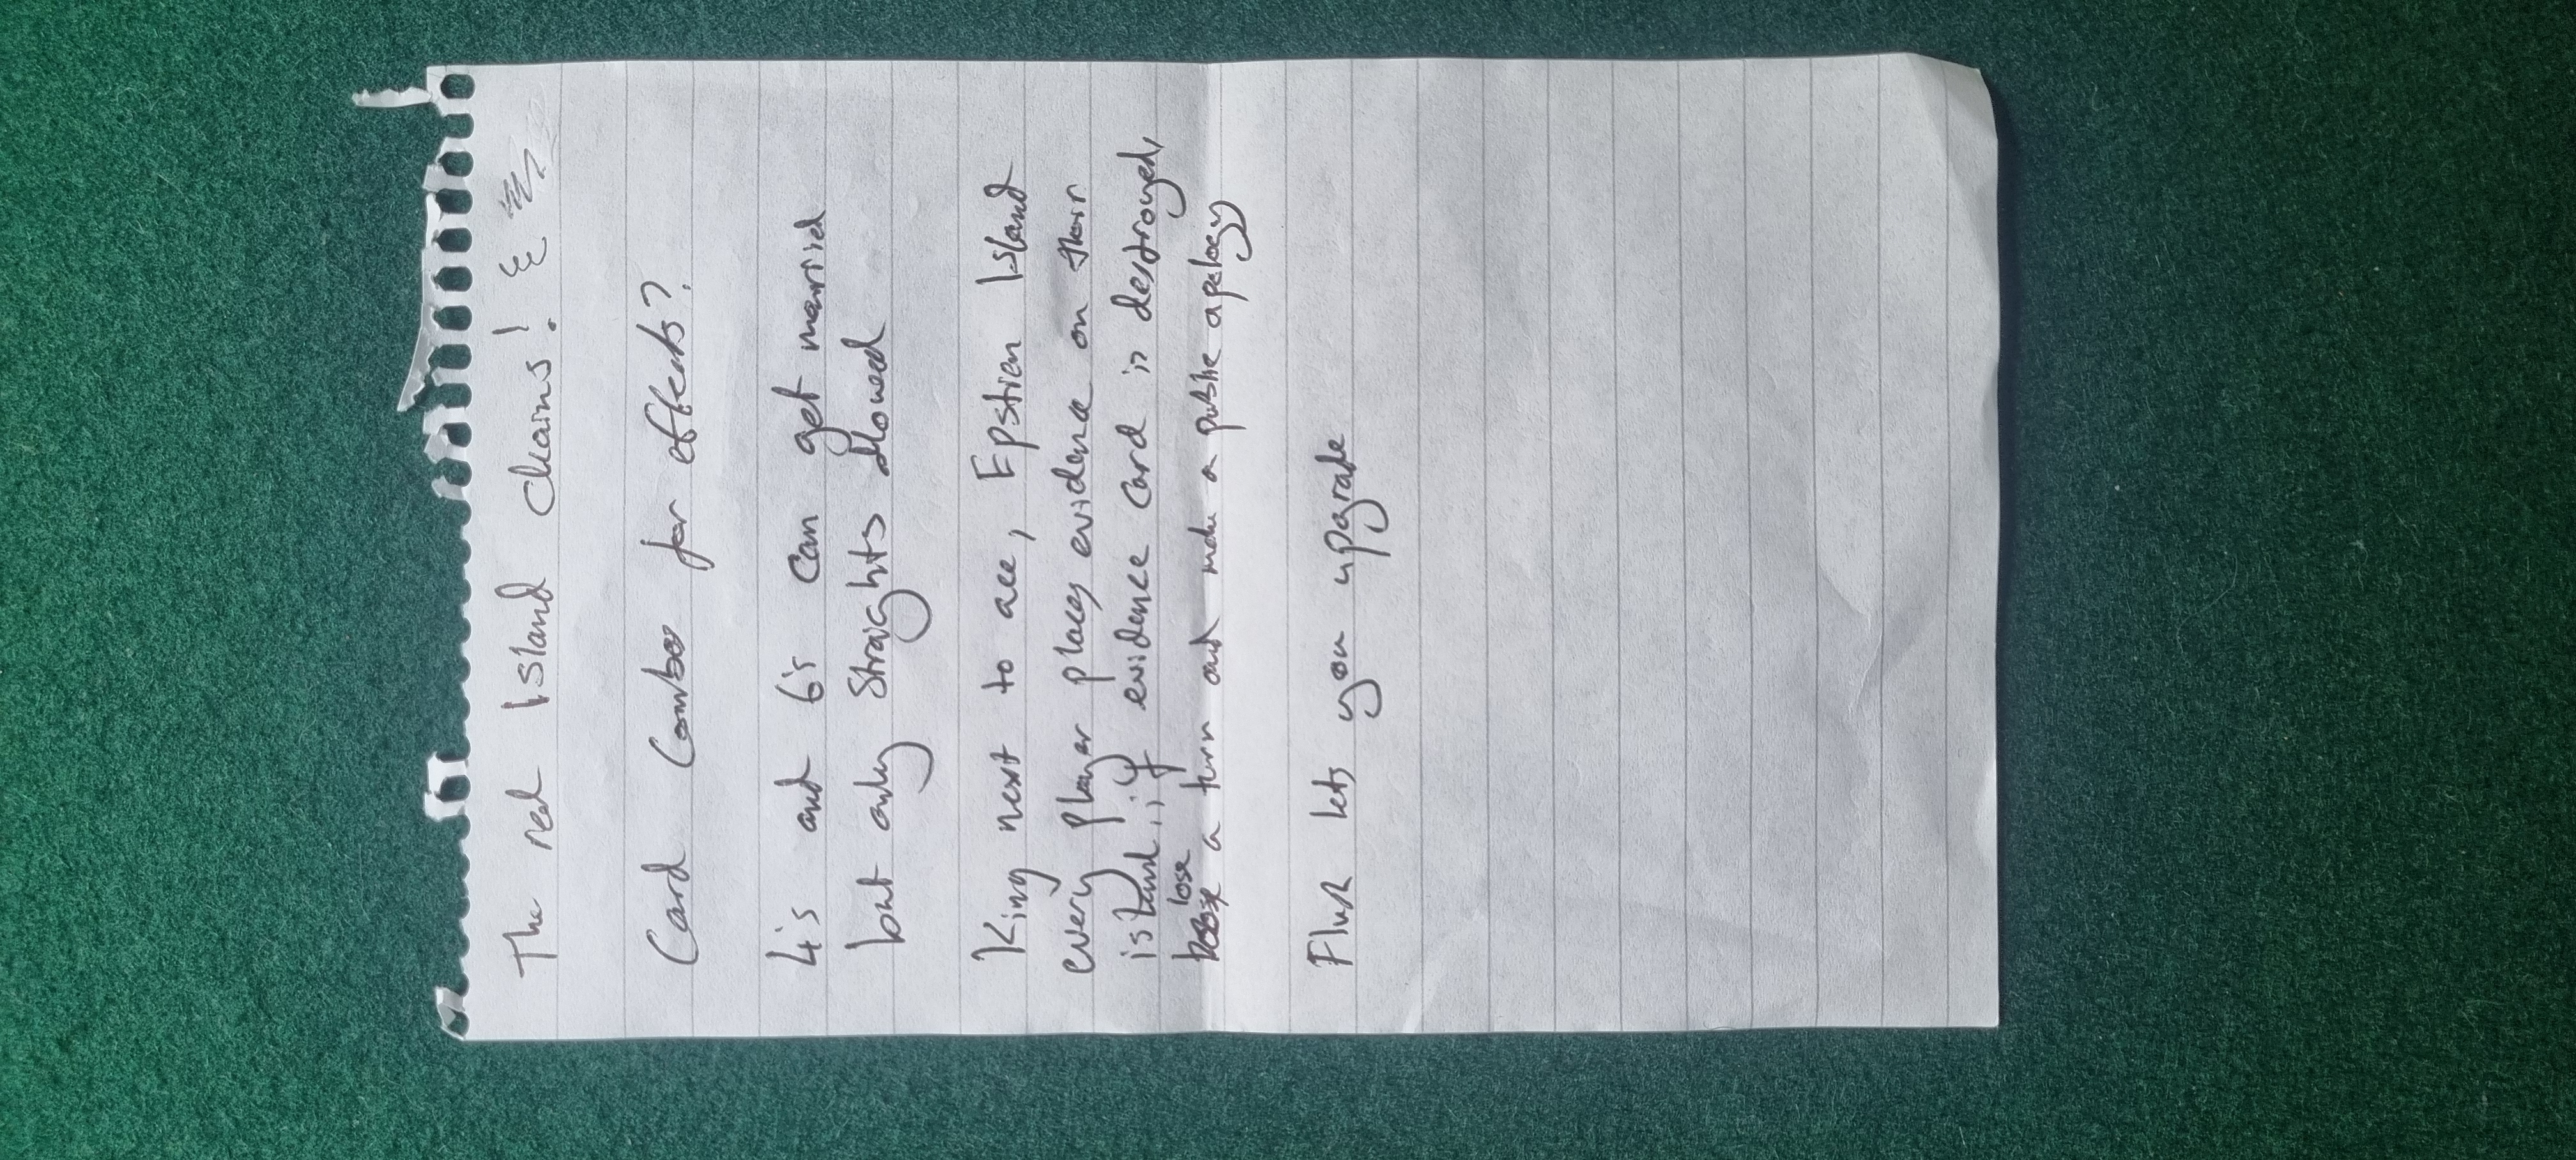 The red Island chains! &
Card Combos for effects?
4's and 6's can get married
but only Straights allowed
King next to ace, Epstien Island
every player places evidence on their
island, if evidence card is destroyed,
lose a turn and make a public apology
Flush lets you upgrade